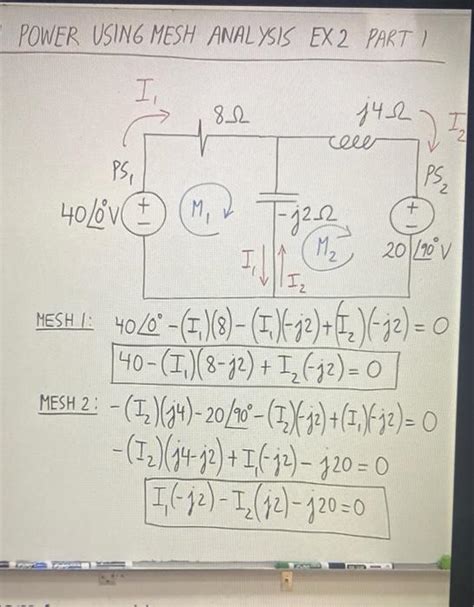 POWER USING MESH ANALYSIS EX 2 PART 1
I₁
8Ω
j4Ω
I₂
PS₁
PS₂
40∠0° V
+
−
M₁
-j2Ω
M₂
+
−
20∠90° V
I₁
I₂
MESH 1: 40∠0° -(I₁)(8)-(I₁)(-j2)+(I₂)(-j2)=0
40-(I₁)(8-j2)+I₂(-j2)=0
MESH 2: -(I₂)(j4)-20∠90°-(I₂)(-j2)+(I₁)(-j2)=0
-(I₂)(j4-j2)+I₁(-j2)-j20=0
I₁(-j2)-I₂(j2)-j20=0